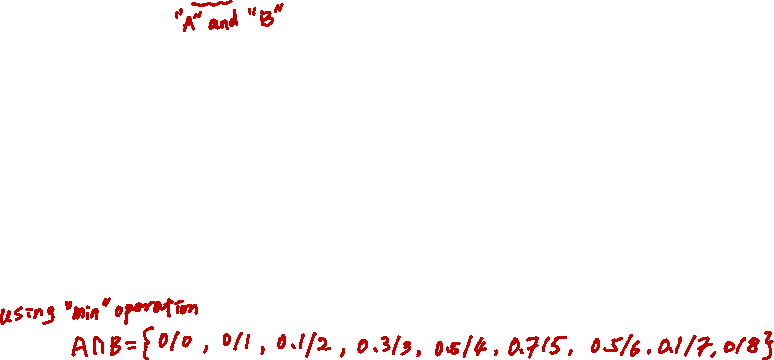 "A" and "B"
using "min" operation
A∩B={0/0, 0/1, 0.1/2, 0.3/3, 0.5/4, 0.7/5, 0.5/6, 0.1/7, 0/8}